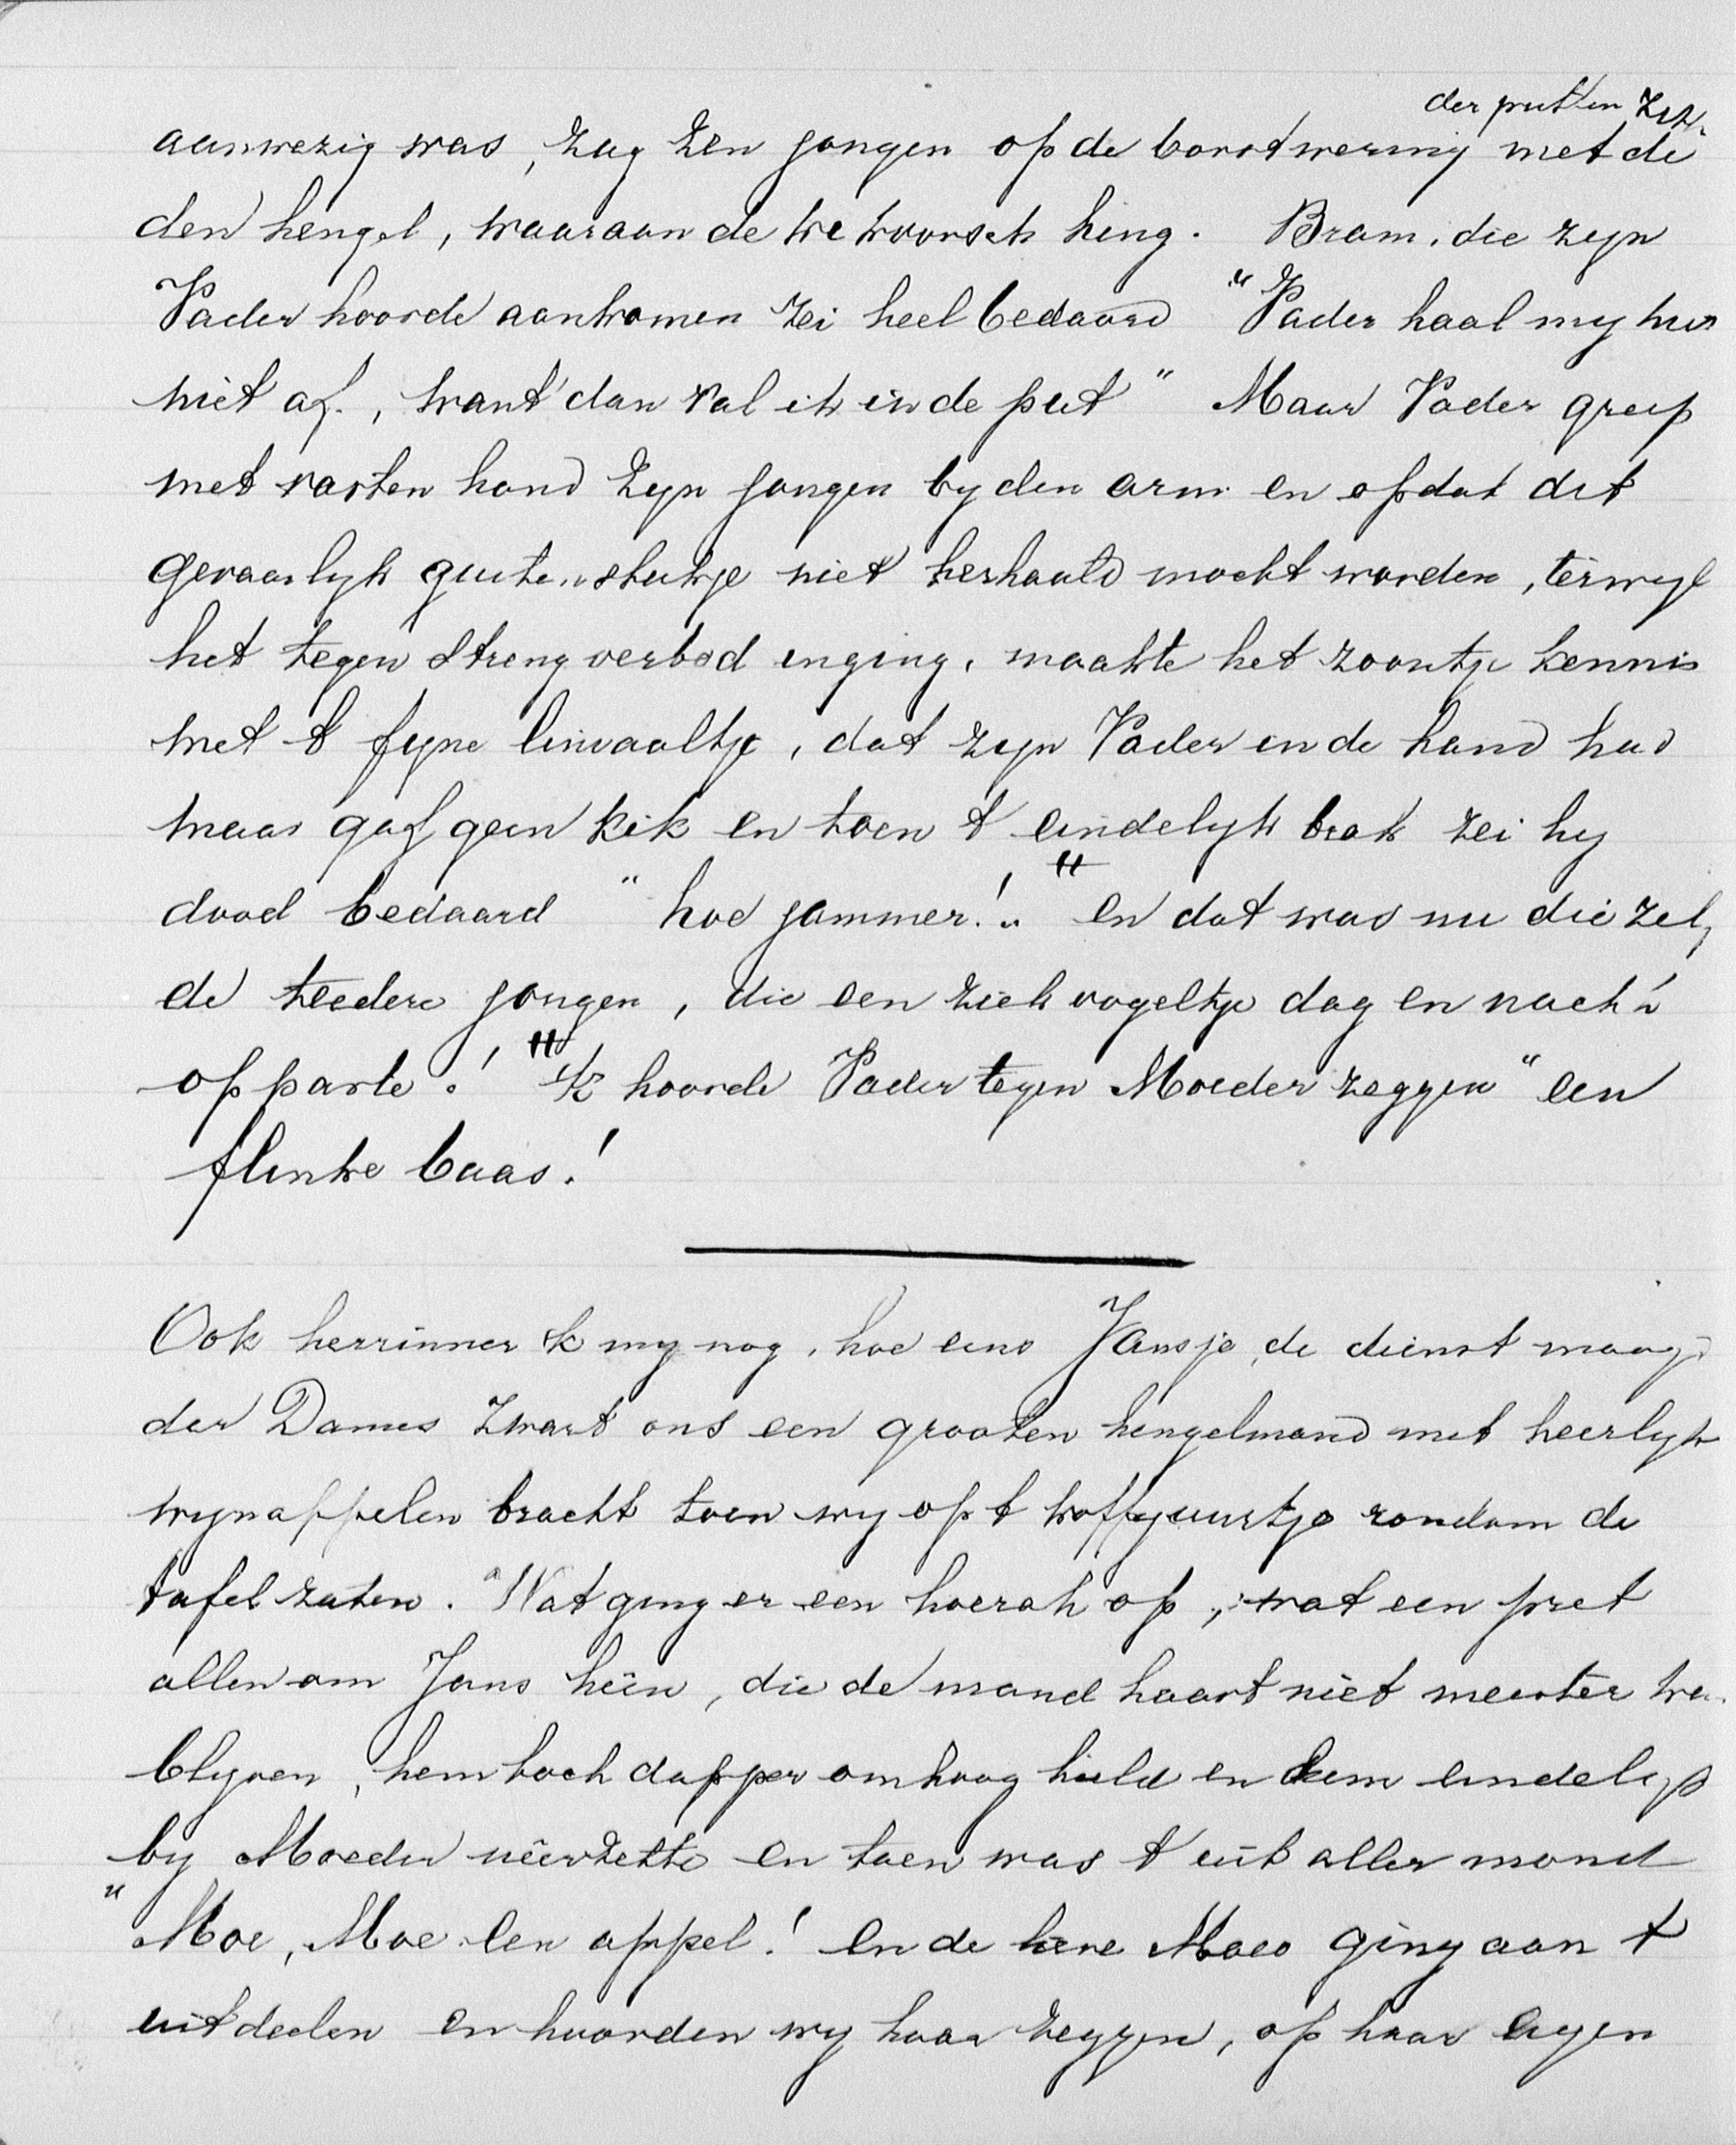 der putten zit-
aanwezig was, zag zen jongen op de borstwering met de
den hengel, waaraan de hing. Bram, die zyn
Vader hoorde aankomen zei heel bedaard "Vader haal my hier
niet af, want dan val ik in de put" Maar Vader greep
met vasten hand zyn jongen by den arm en opdat dit
gevaarlyk guitenstukje niet herhaald mocht worden, terwyl
het tegen streng verbod inging, maakte het zoontje kennis
met t fyne liniaaltje, dat zyn Vader in de hand had
maar gaf geen kik en toen t eindelyk brak zei hy
dood bedaard "hoe jammer!" en dat was nu die zelf
de teedere jongen, die een ziek vogeltje dag en nacht
oppaste! "Ik hoorde Vader tegen Moeder zeggen "een
flinke baas!
Ook herrinner ik my nog, hoe eens Jansje, de dienst maagd
der Dames Zwart ons een grooten hengelmand met heerlyk
wynappelen bracht toen wy op t koffyuurtje rondom de
tafel zaten. Wat ging er een hoerah op, wat een pret
allen om Jans heen, die de mand haast niet meester kon
blyven, hem toch dapper omhoog hield en hem eindelyk
by Moeder neerzette en toen was t uit aller mond
"Moe, Moe een appel! en de lieve Moes ging aan t
uitdeelen en hoorden wy haar zeggen, op haar eigen